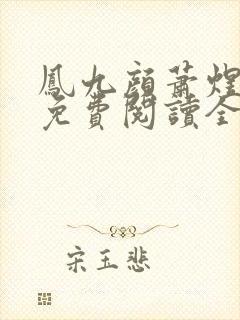 鳳九顏蕭煌
免費閱讀全
宋玉悲